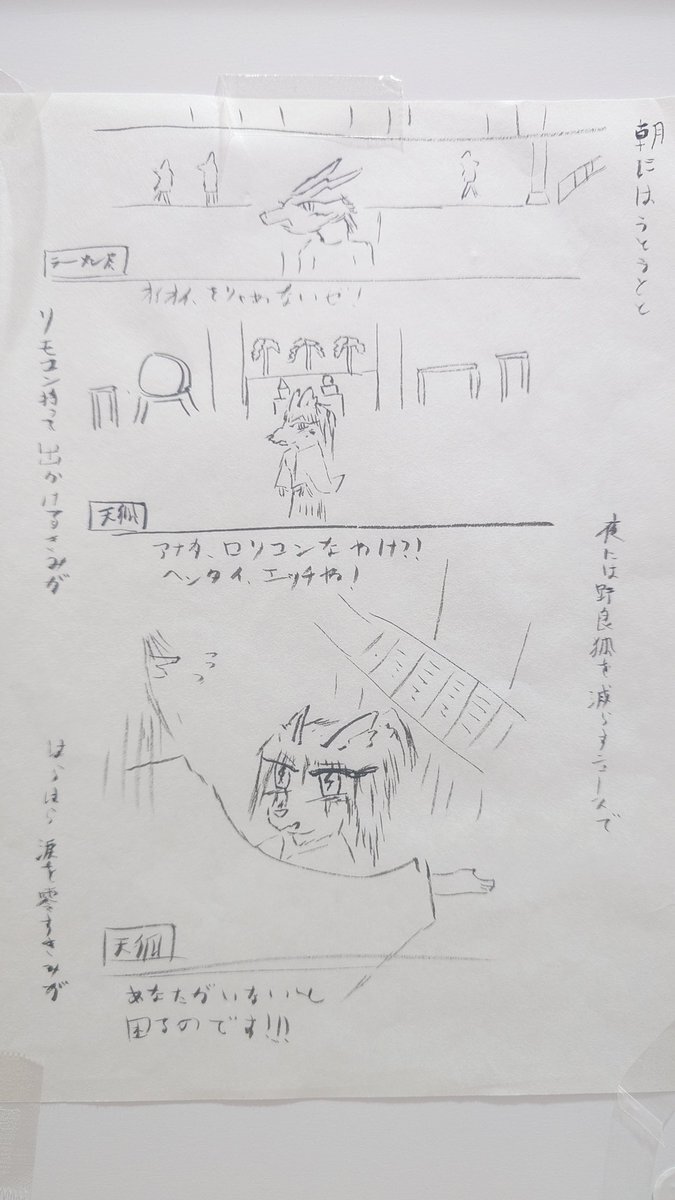 朝にはうとうとと
リモコン持って出かけるきみが
夜には野良狐を減らすニュースで
はらはら涙を零すきみが
ラーメン犬
オイオイ、そりゃねぇないぜ!
天狐
アナタ、ロリコンなわけ?!
ヘンタイ、エッチやる!
天狐
あなたがいないと
困るのです!!!